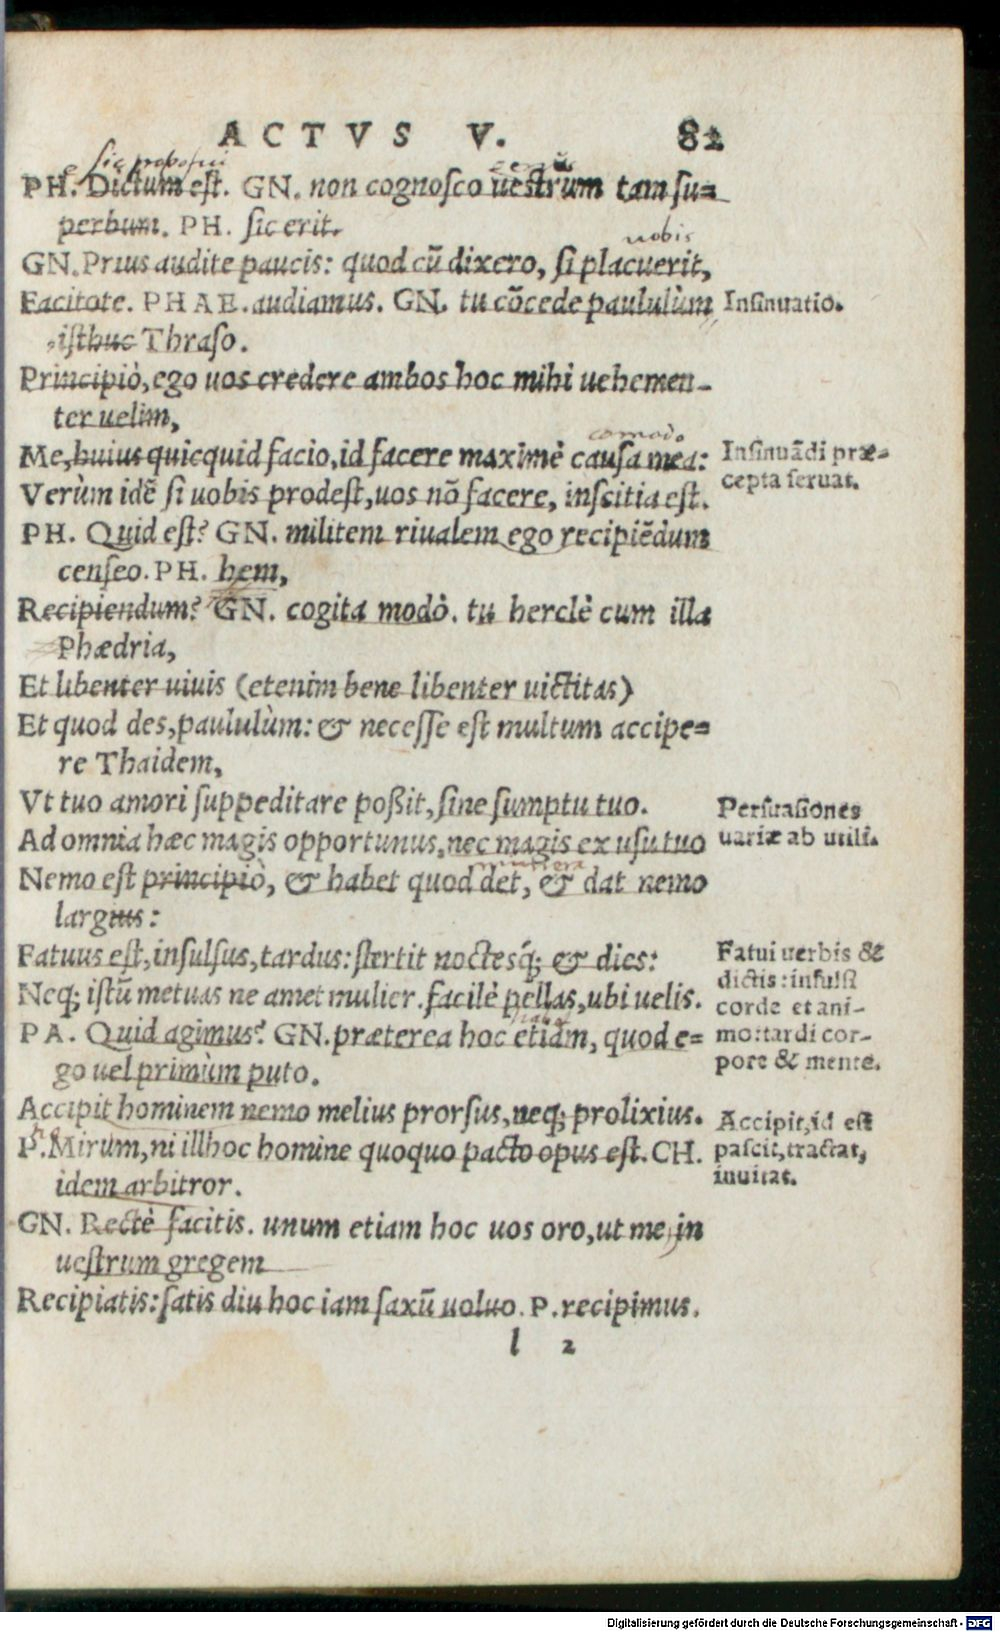 ACTVS V. 82
sic proposui
PH. Dictum est. GN. non cognosco uestrum tam su=
perbum. PH. sic erit.
uobis
GN. Prius audite paucis: quod cũ dixero, si placuerit,
Facitote. PHAE. audiamus. GN. tu cõcede paululùm
Insinuatio.
isthuc Thraso.
Principiò, ego uos credere ambos hoc mihi uehemen-
ter uelim,
comodo
Me, huius quicquid facio, id facere maximè causa mea:
Insinuãdi præ=
cepta seruat.
Verùm idẽ si uobis prodest, uos nõ facere, inscitia est.
PH. Quid est? GN. militem riualem ego recipiẽdum
censeo. PH. hem,
Recipiendum? GN. cogita modò. tu herclè cum illa
Phædria,
Et libenter uiuis (etenim bene libenter uictitas)
Et quod des, paululùm: & necesse est multum accipe=
re Thaidem,
Vt tuo amori suppeditare poßit, sine sumptu tuo.
Persuasiones
uariæ ab utili.
Ad omnia hæc magis opportunus, nec magis ex usu tuo
munera
Nemo est principiò, & habet quod det, & dat nemo
largius:
Fatuus est, insulsus, tardus: stertit noctesq́; & dies:
Fatui uerbis &
dictis: insulsi
corde et ani-
mo: tardi cor-
pore & mente.
Neq; istũ metuas ne amet mulier. facilè pellas, ubi uelis.
PA. Quid agimus? GN. præterea hoc etiam, quod e=
go uel primùm puto.
Accipit hominem nemo melius prorsus, neq; prolixius.
Accipit, id est
pascit, tractat,
inuitat.
P. Mirum, ni illhoc homine quoquo pacto opus est. CH.
idem arbitror.
GN. Rectè facitis. unum etiam hoc uos oro, ut me in
uestrum gregem
Recipiatis: satis diu hoc iam saxũ uoluo. P. recipimus.
l 2
Digitalisierung gefördert durch die Deutsche Forschungsgemeinschaft - DFG